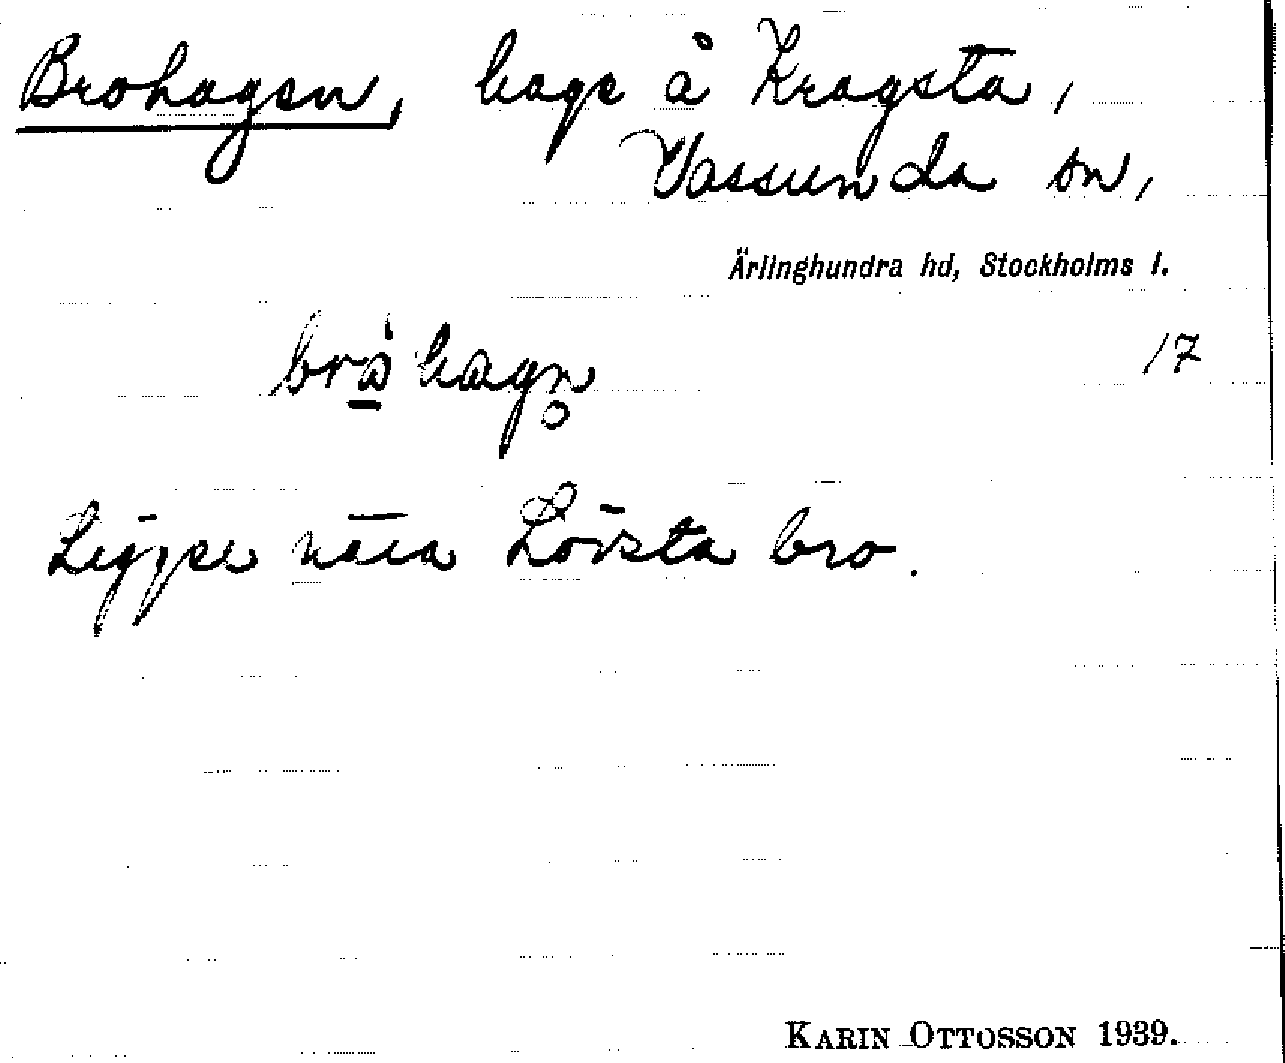 Brohagen, hage å Kragsta,
Vassunda sn,
Ärlinghundra hd, Stockholms l.
17
Ligger nära Lövsta bro.
KARIN OTTOSSON 1939.